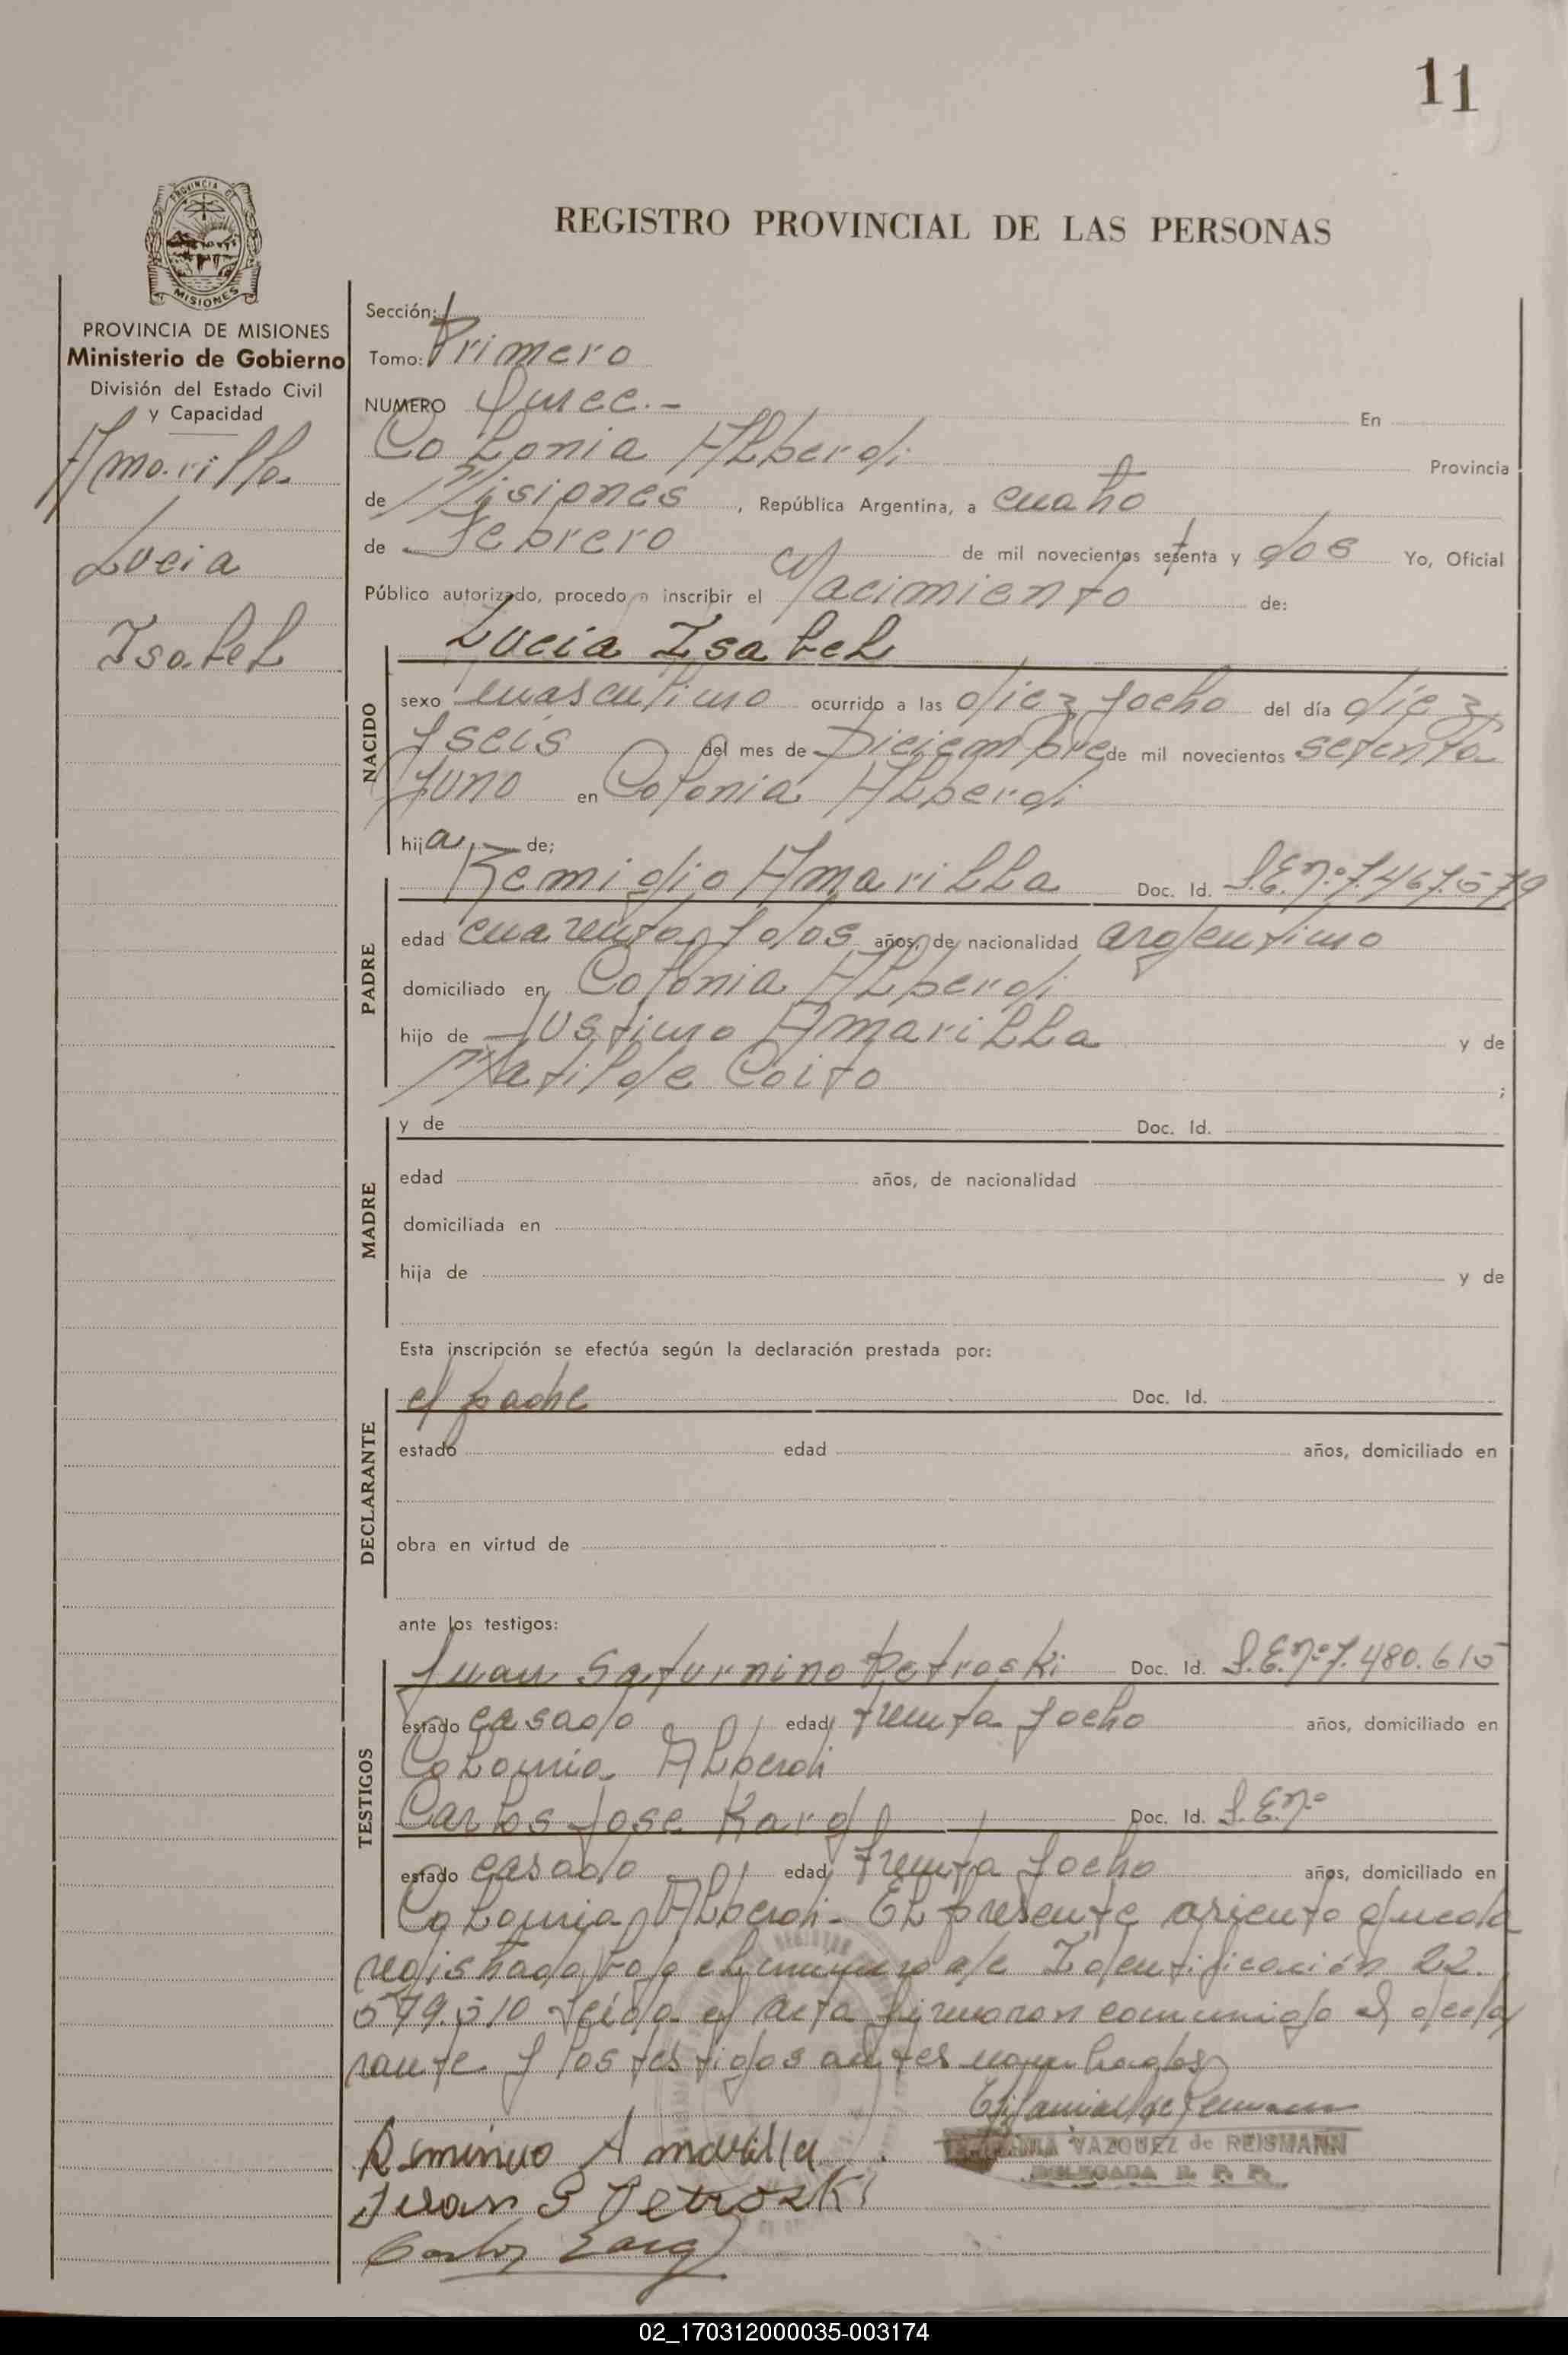 11
PROVINCIA DE
MISIONES
REGISTRO PROVINCIAL DE LAS PERSONAS
PROVINCIA DE MISIONES
Ministerio de Gobierno
División del Estado Civil
y Capacidad
Amarilla
Lucia
Isabel
Sección:
Tomo: Primero
NUMERO Once.- En
Colonia Alberdi Provincia
de Misiones, República Argentina, a cuatro
de Febrero de mil novecientos setenta y dos Yo, Oficial
Público autorizado, procedo a inscribir el Nacimiento de:
NACIDO
Lucía Isabel
sexo masculino ocurrido a las diez y ocho del día diez
y seis del mes de Diciembre de mil novecientos setenta
y uno en Colonia Alberdi
hija de:
PADRE
Remigio Amarilla Doc. Id. L.E. nº 7.467.579
edad cuarenta y dos años, de nacionalidad argentino
domiciliado en Colonia Alberdi
hijo de Justino Amarilla y de
Matilde Coito ;
MADRE
y de Doc. Id.
edad años, de nacionalidad
domiciliada en
hija de y de
Esta inscripción se efectúa según la declaración prestada por:
DECLARANTE
el padre Doc. Id.
estado edad años, domiciliado en
obra en virtud de
ante los testigos:
TESTIGOS
Juan Saturnino Petroski Doc. Id. L.E. nº 7.480.615
estado casado edad treinta y ocho años, domiciliado en
Colonia Alberdi
Carlos Jose Karg Doc. Id. L.E. nº
estado casado edad treinta y ocho años, domiciliado en
Colonia Alberdi- El presente asiento queda
registrado bajo el numero de Identificación 22.
579.510 Leida el acta firmaron conmigo el decla
rante y los testigos antes nombrados
VAZQUEZ de REISMANN
DELEGADA R. P. P.
Amarilla
Juan S Petroski
Carlos Karg
02_170312000035-003174